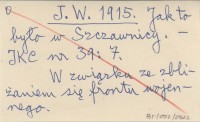 J. W. 1915. Jak to
było w Szczawnicy. –
JKC nr 39: 7.
W związku ze zbli-
żaniem się frontu wojen-
nego.